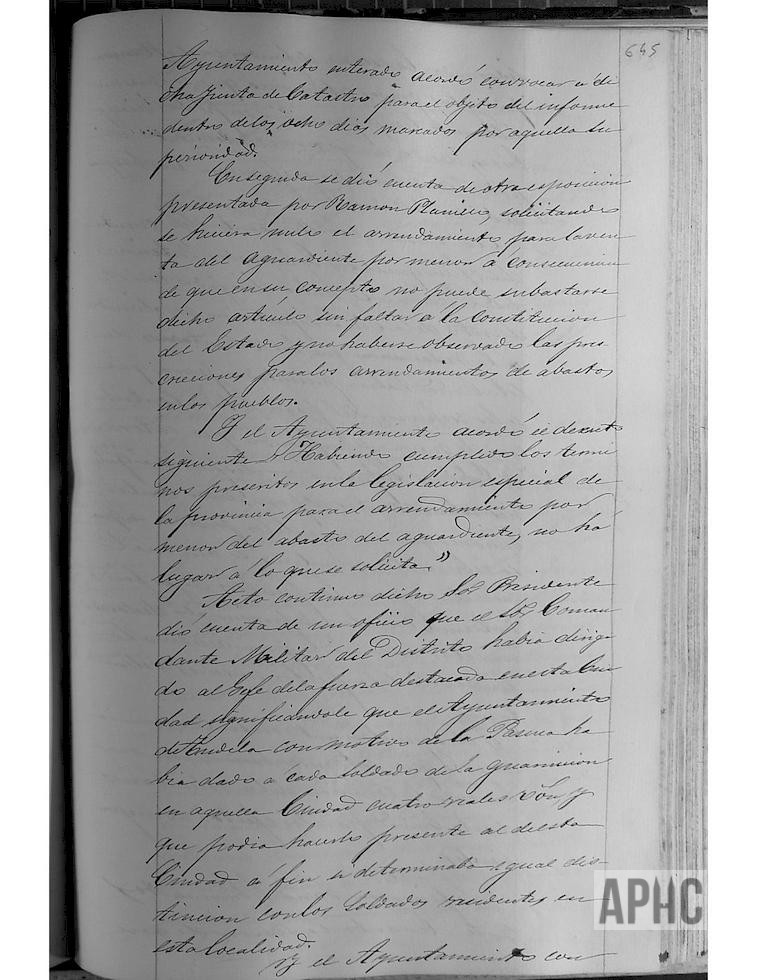 645
Ayuntamiento enterado acordó convocar á di
cha Junta de Catastro para el objeto del informe
dentro de los ocho dias marcados por aquella Su
perioridad.
En seguida se dió cuenta de otra esposicion
presentada por Ramon Planillo, solicitando
se hiciera nulo el arrendamiento para la ven
ta del aguardiente por menor á consecuencia
de que en su concepto no puede subastarse
dicho artículo sin faltar á la Constitucion
del Estado y no haberse observado las pres
cripciones para los arrendamientos de abastos
en los pueblos.
Y el Ayuntamiento acordó el decreto
siguiente "Habiendo cumplido los termi
nos prescritos en la legislacion especial de
la provincia para el arrendamiento por
menor del abasto del aguardiente, no há
lugar á lo que se solicita"
Acto continuo dicho Sor Presidente
dió cuenta de un oficio que el Sor Coman
dante Militar del Distrito habia dirigi
do al Gefe de la fuerza destacada en esta Ciu
dad significandole que el Ayuntamiento
de Tudela con motivo de la Pascua ha
bia dado a cada Soldado de la guarnicion
en aquella Ciudad cuatro reales von y
que podia hacerlo presente al de esta
Ciudad á fin si determinaba igual dis
tincion con los Soldados residentes en
esta localidad.
Y el Ayuntamiento con
APHC